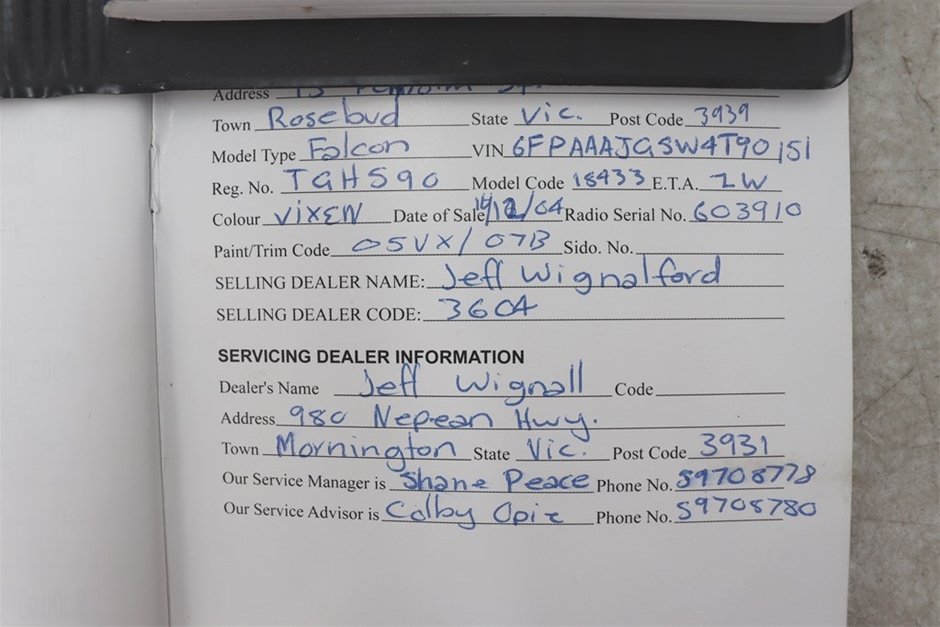 Address 13
Town Rosebud State Vic. Post Code 3939
Model Type Falcon VIN 6FPAAAJGSW4T90151
Reg. No. TGH590 Model Code 18433 E.T.A. ZW
Colour ViXEN Date of Sale 14/12/04 Radio Serial No. 603910
Paint/Trim Code 05VX/07B Sido. No.
SELLING DEALER NAME: Jeff Wignalford
SELLING DEALER CODE: 3604
SERVICING DEALER INFORMATION
Dealer's Name Jeff Wignall Code
Address 980 Nepean Hwy.
Town Mornington State Vic. Post Code 3931
Our Service Manager is Shane Peace Phone No. 59708778
Our Service Advisor is Colby Opie Phone No. 59708780